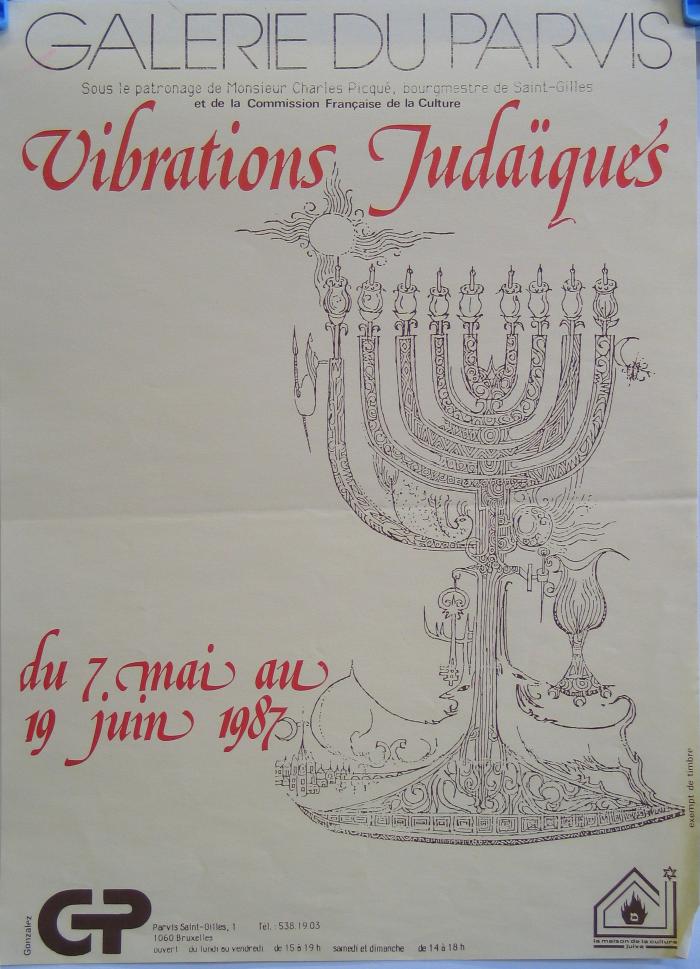 GALERIE DU PARVIS
Sous le patronage de Monsieur Charles Picqué, bourgmestre de Saint-Gilles
et de la Commission Française de la Culture
Vibrations Judaïques
du 7 mai au
19 juin 1987
exempt de timbre
Gonzalez
GP
Parvis Saint-Gilles, 1 Tél. : 538.19.03
1060 Bruxelles
ouvert du lundi au vendredi de 15 à 19 h samedi et dimanche de 14 à 18 h
מ
la maison de la culture
juive